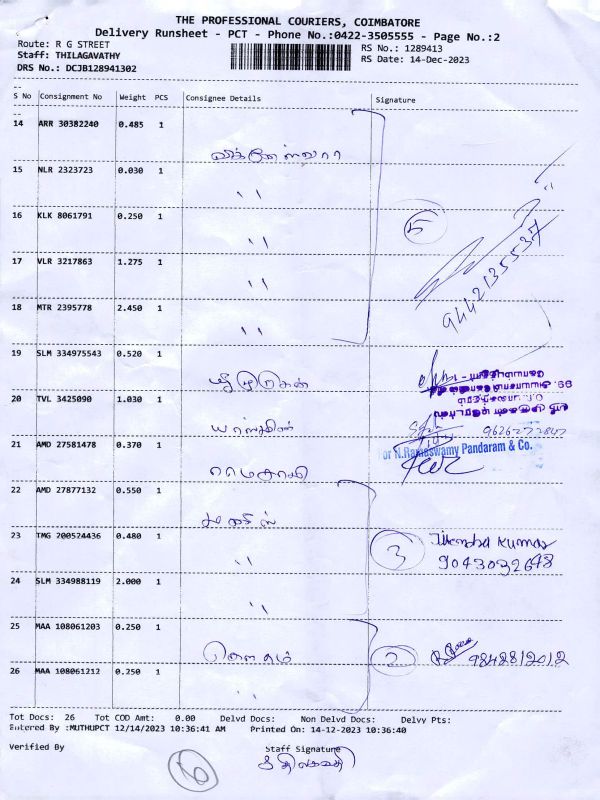 THE PROFESSIONAL COURIERS, COIMBATORE
Delivery Runsheet - PCT - Phone No.:0422-3505555 - Page No.:2
Route: R G STREET
RS No.: 1289413
Staff: THILAGAVATHY
RS Date: 14-Dec-2023
DRS No.: DCJB128941302
S No Consignment No Weight PCS Consignee Details Signature
14 ARR 30382240 0.485 1
விக்னேஸ்வரா
15 NLR 2323723 0.030 1
"
16 KLK 8061791 0.250 1
"
5
9442135537
17 VLR 3217863 1.275 1
"
18 MTR 2395778 2.450 1
"
19 SLM 334975543 0.520 1
ஸ்ரீ முருகன்
20 TVL 3425090 1.030 1
9626272847
21 AMD 27581478 0.370 1
For N.Ramaswamy Pandaram & Co.
ராமசாமி
22 AMD 27877132 0.550 1
23 TMG 200524436 0.480 1
"
3 Jitendra Kumar
9043032648
24 SLM 334988119 2.000 1
"
25 MAA 108061203 0.250 1
கௌதம்
2 9842812012
26 MAA 108061212 0.250 1
"
Tot Docs: 26 Tot COD Amt: 0.00 Delvd Docs: Non Delvd Docs: Delvy Pts:
Entered By :MUTHUPCT 12/14/2023 10:36:41 AM Printed On: 14-12-2023 10:36:40
Verified By
Staff Signature
திலகவதி